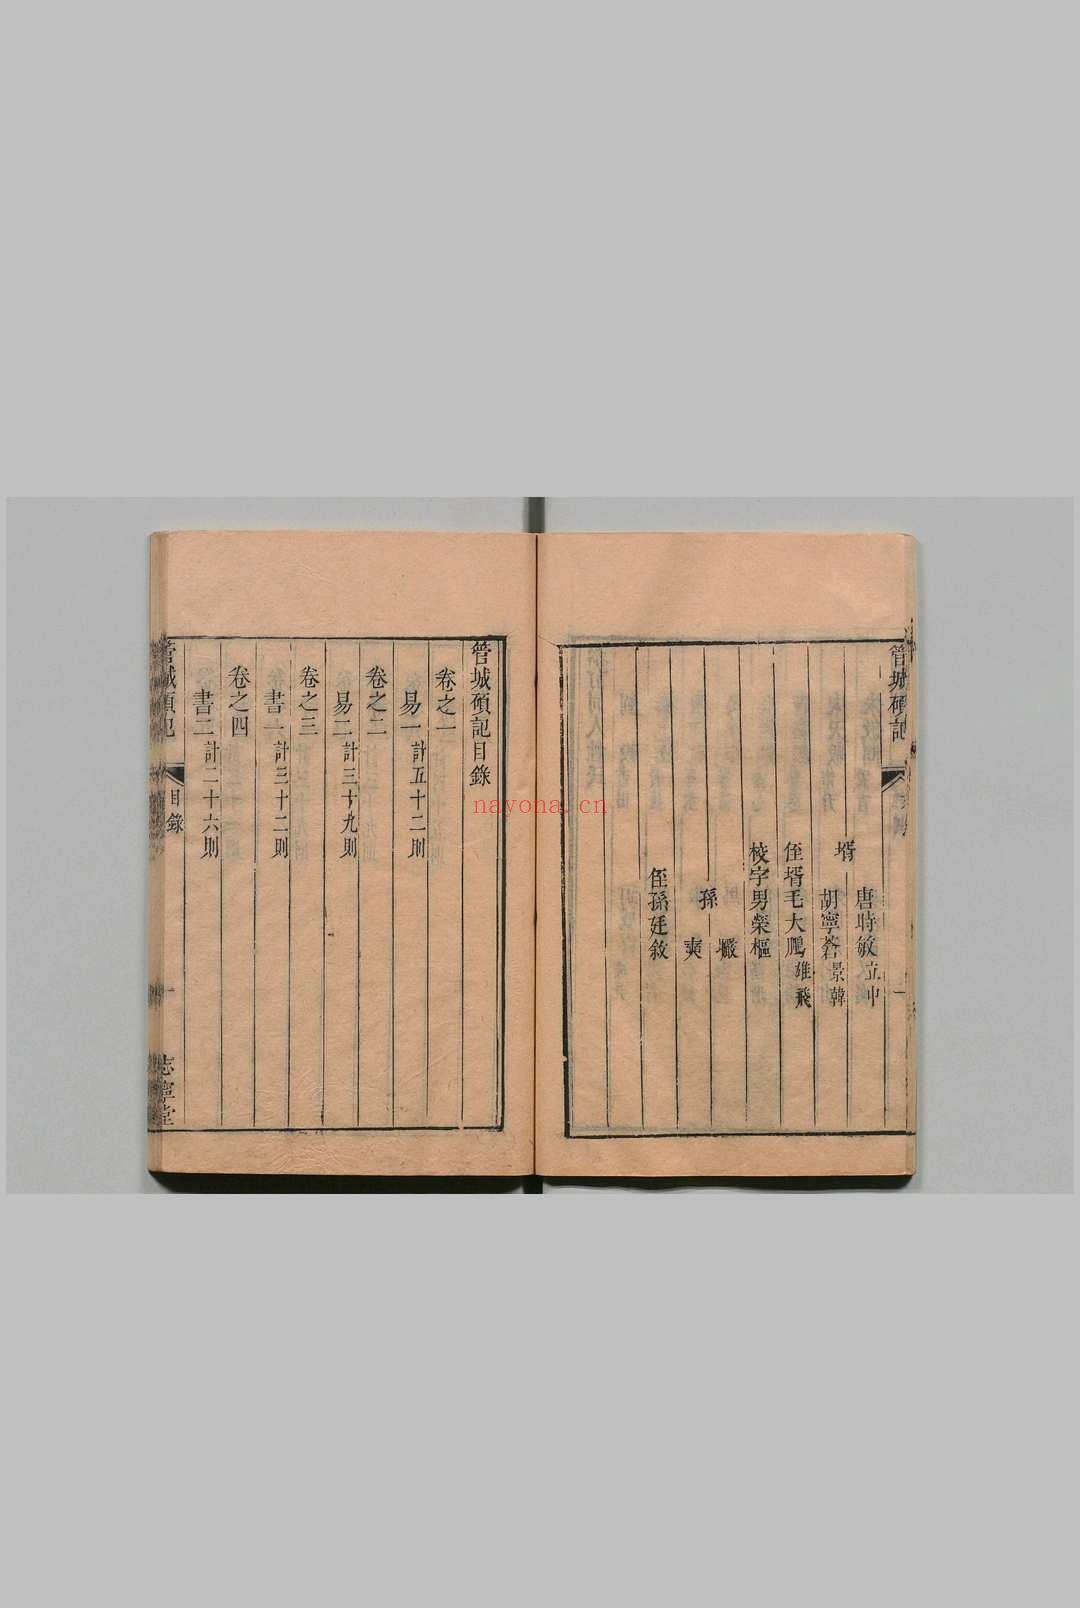 管城碩記
一
壻
唐時敏立中
胡寧蒼景韓
侄壻毛大鵬雄飛
校字男榮樞
巖
孫
奭
侄孫廷敘
管城碩記目錄
卷之一
易一計五十二則
卷之二
易二計三十九則
卷之三
書一計三十二則
卷之四
書二計二十六則
管城碩記
目錄
一
志寧堂
nayona.cn